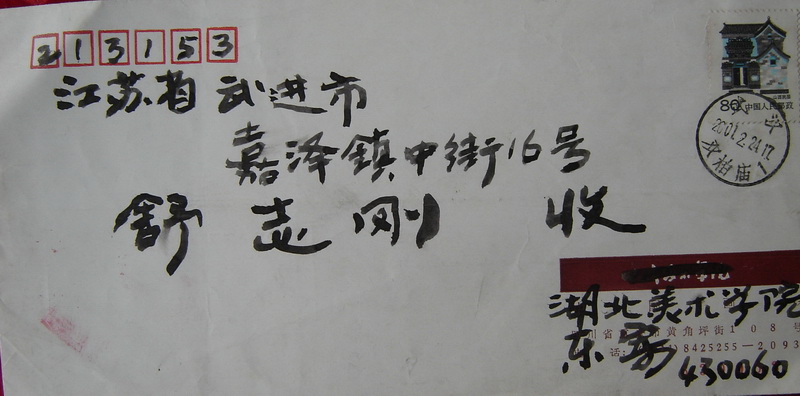 213153
江苏省 武进市
嘉泽镇中街16号
舒志刚 收
80 中国人民邮政
2001.2.24.17
湖北美术学院
黄角坪街108号
8425255—2093
430060